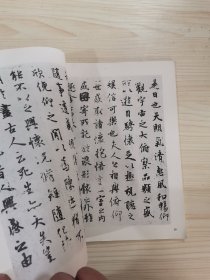 是日也天朗氣清惠風和暢仰
觀宇宙之大俯察品類之盛
所以遊目騁懷足以極視聽之
娛信可樂也夫人之相與俯仰
一世或取諸懷抱悟言一室之內
或因寄所託放浪形骸之
隨事遷感
欣俛仰之間以為陳迹
能不以之興懷況脩短隨化
盡古人云死生亦大矣豈
人興感之由